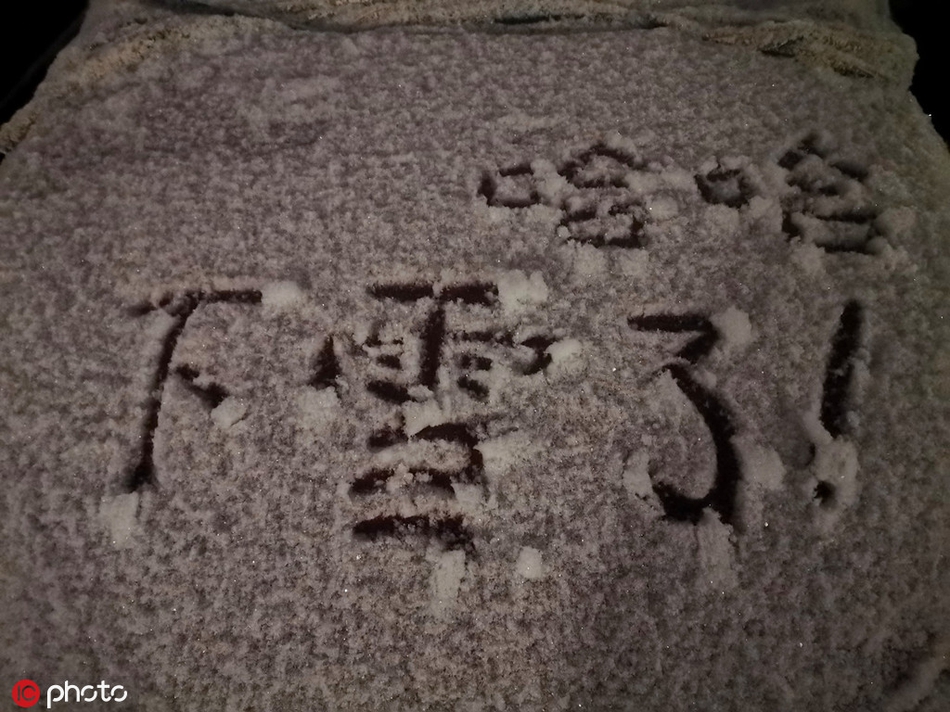 哈哈
下雪了!
IC photo